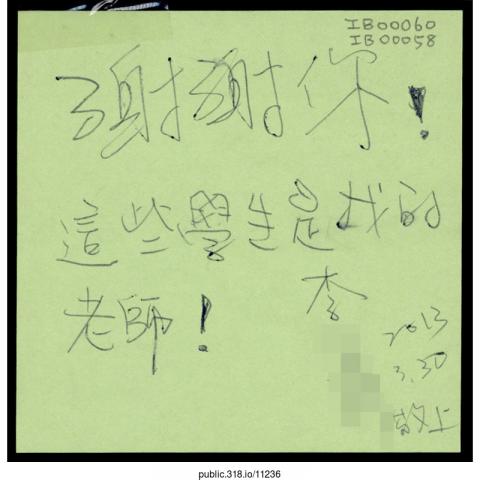 IB00060
IB00058
謝謝你!
這些學生是我的
老師!
李
2013
3.30
敬上
public.318.io/11236